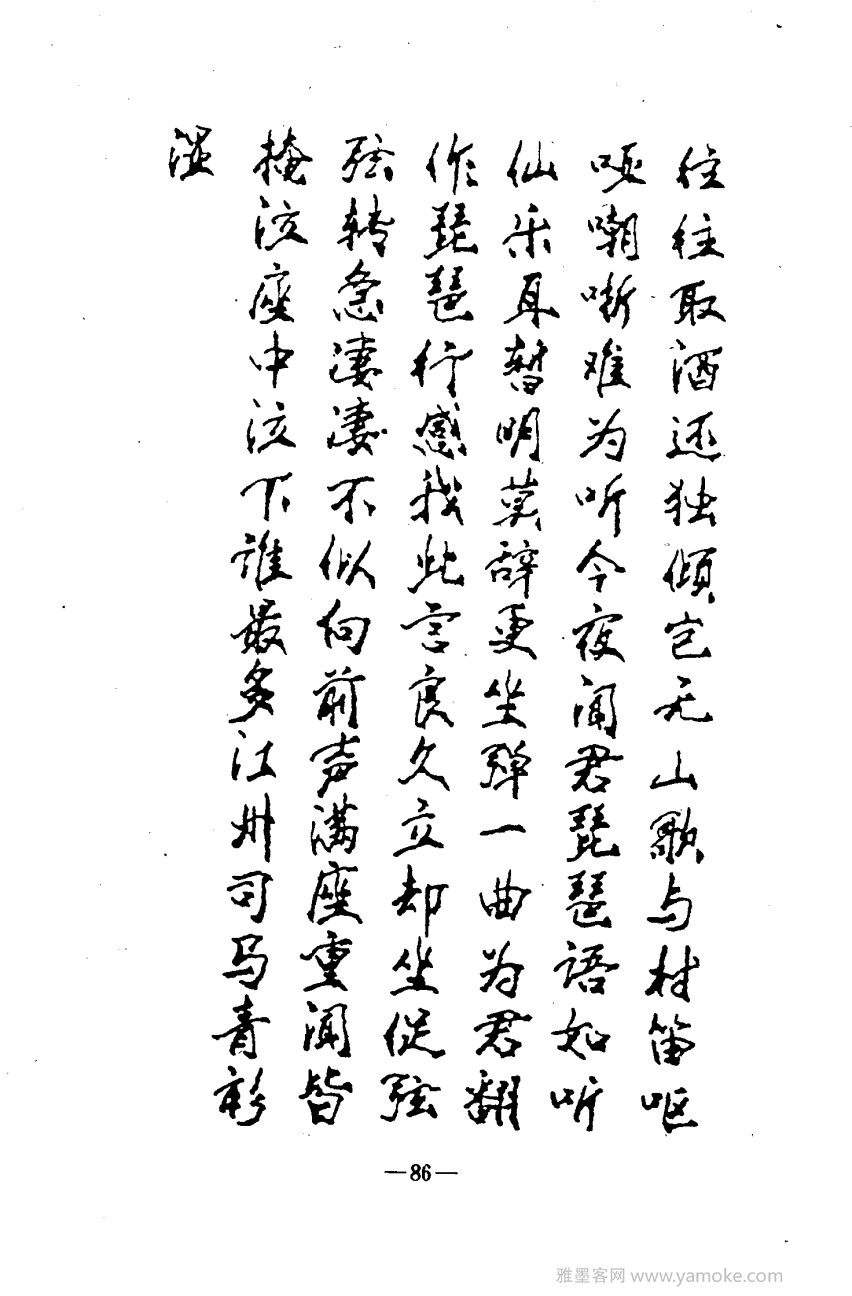 往往取酒还独倾岂无山歌与村笛呕
哑嘲哳难为听今夜闻君琵琶语如听
仙乐耳暂明莫辞更坐弹一曲为君翻
作琵琶行感我此言良久立却坐促弦
弦转急凄凄不似向前声满座重闻皆
掩泣座中泣下谁最多江州司马青衫
湿
—86—
雅墨客网 www.yamoke.com